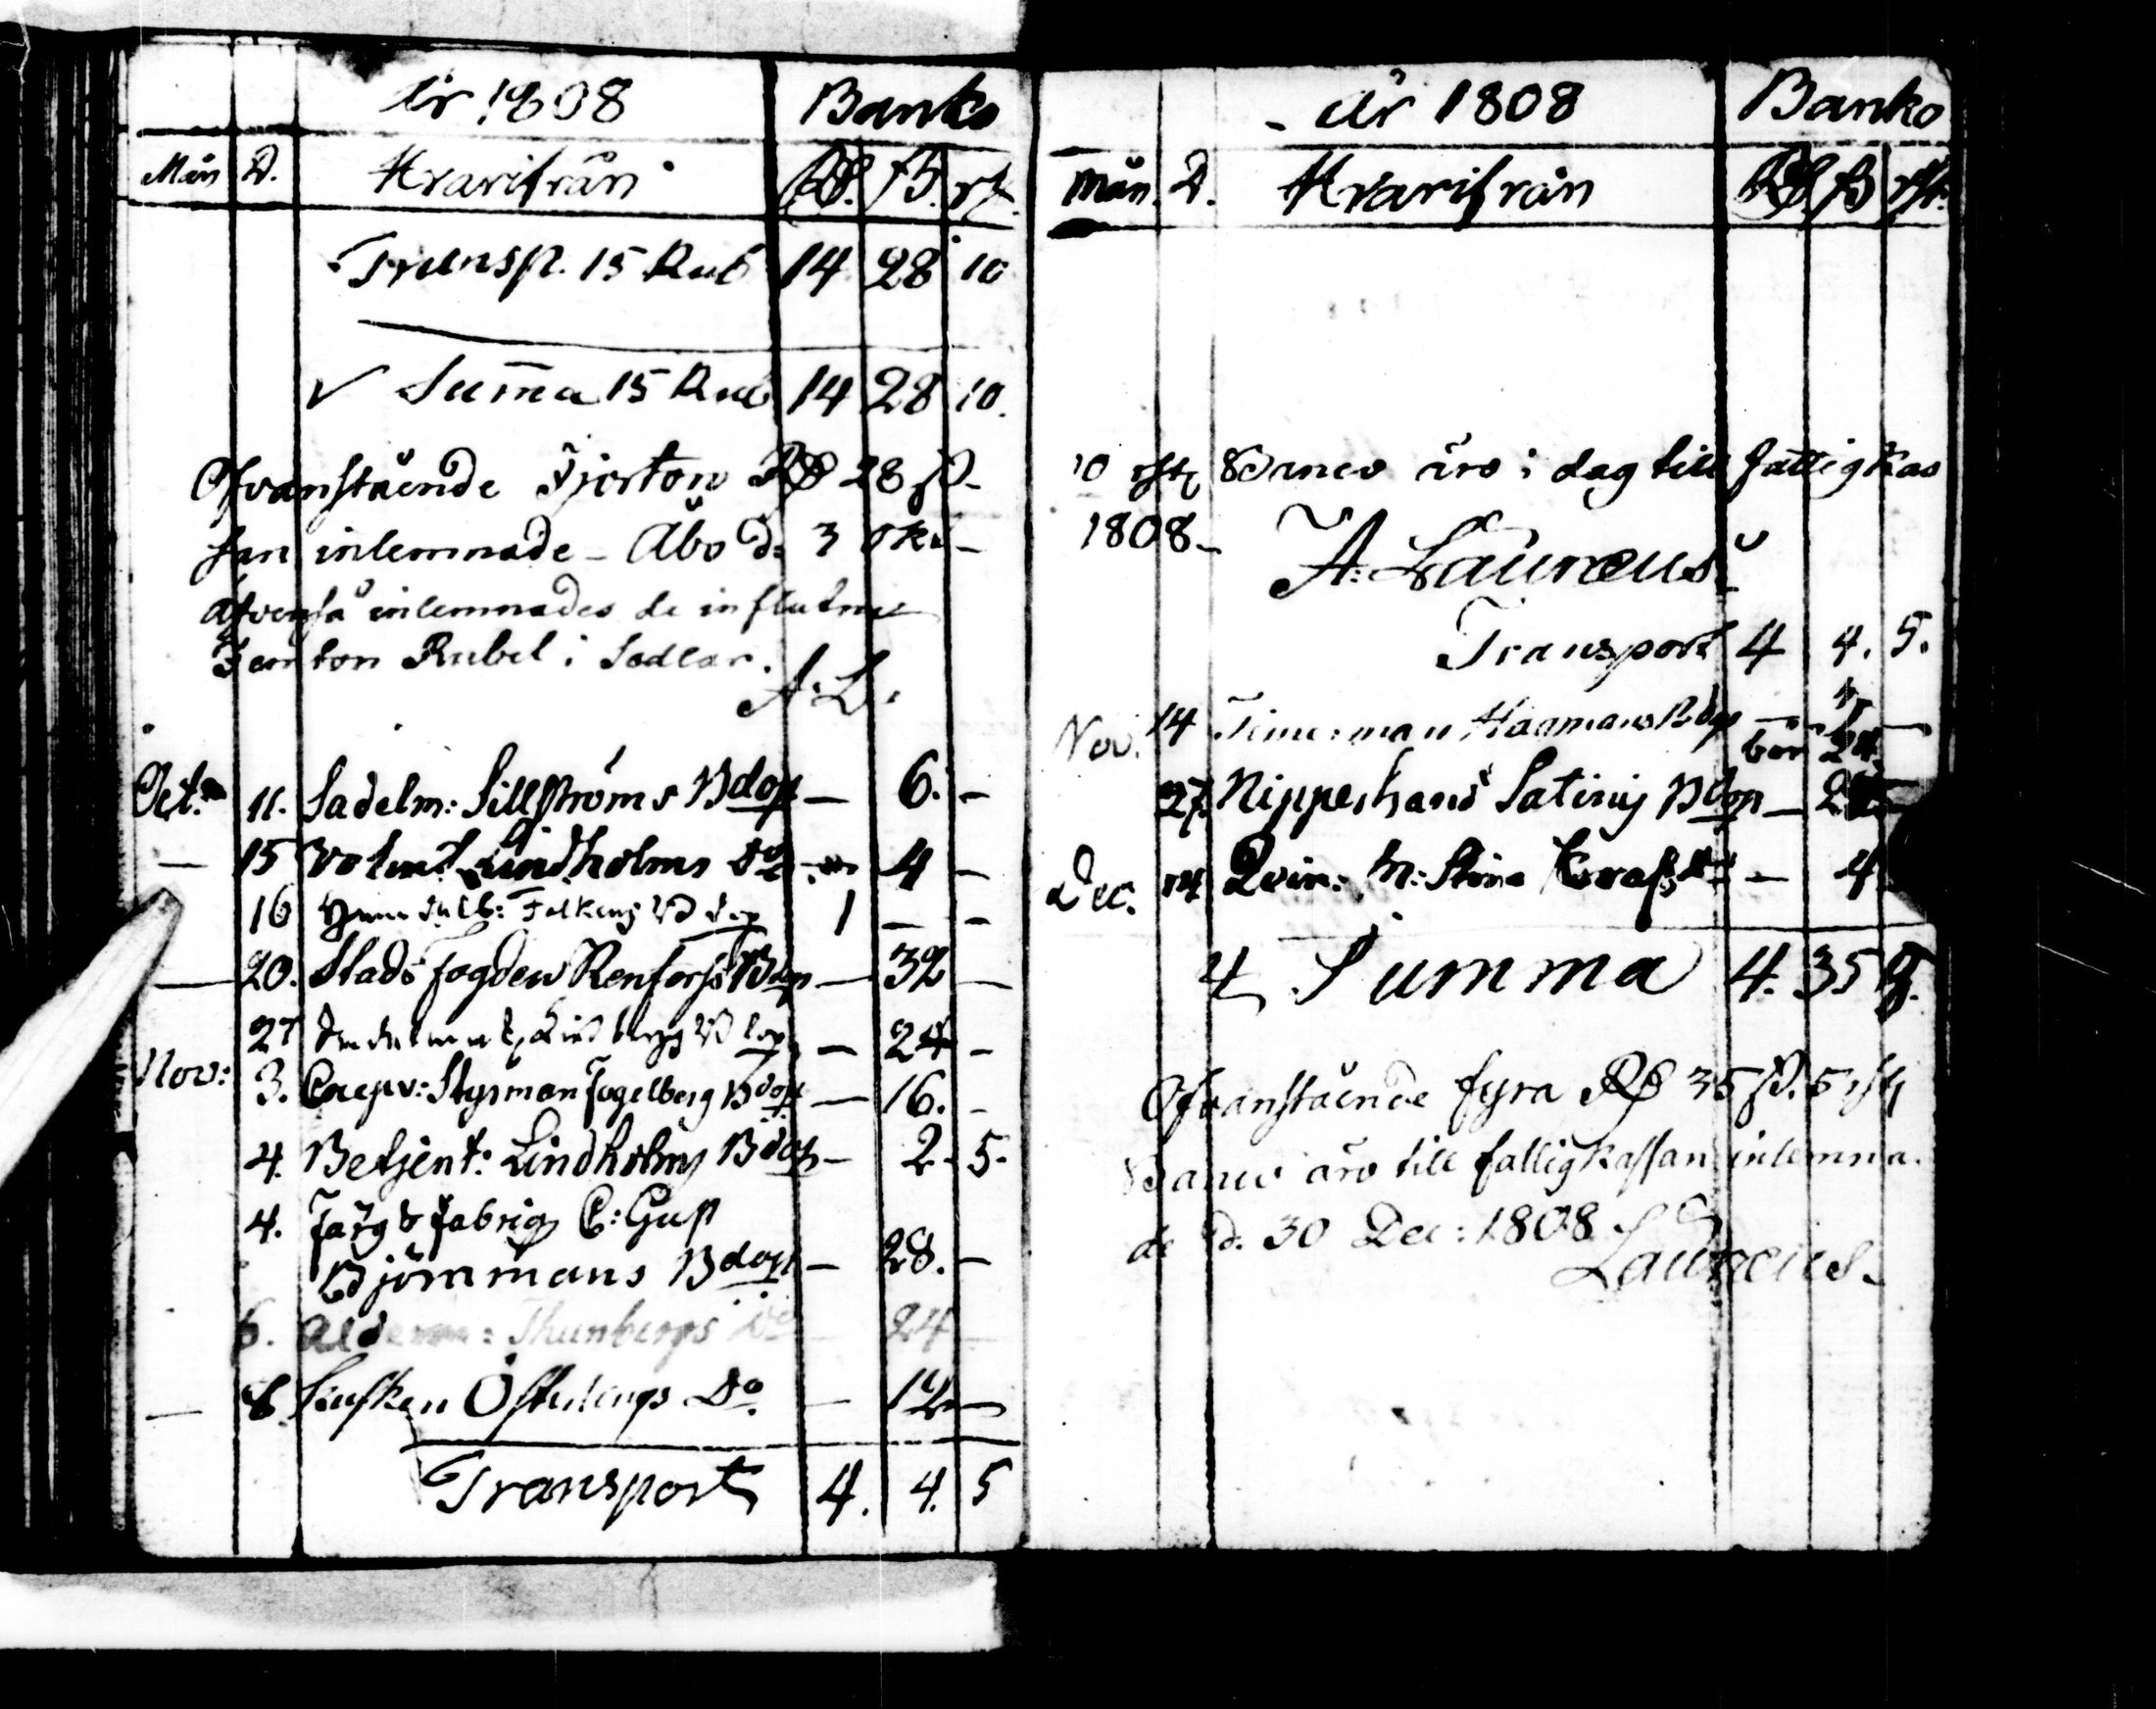 År 1808 Banko
Mån D. Hvarifrån Rd. ß. rst.
Transp. 15 Rub 14 28 10
Summa 15 Rub 14 28 10.
Ofvanstående Fjorton Rd 28 ß.
san inlemnade - Åbo d. 3 okt -
äfvenså inlemnades de influtne
Femton Rubel i Sedlar.
A. L.
Oct. 11. Sadelm: Sillströms Bdop — 6. -
— 15 Lindholms Do — 4 —
16 1 — —
— 20. Stads Fogden Renfors Bdop — 32 —
27 — 24 -
Nov: 3. Styrman Fogelberg Bdop — 16. -
4. Betjent: Lindholms Bdop — 2. 5.
4. Färg & fabriq C: Gust
Björnmans Bdop — 28. —
6. Alderm: Thunbergs Do — 24 —
— 8. Do. — 12 —
Transport 4. 4. 5
År 1808 Banko
Mån. D. Hvarifrån Rd. ß rst.
10 rst Banco äro i dag till fattigkas
1808. A: Laureus
Transport 4 4. 5.
Nov. 14 Timerman Hagmans Bdop —
27. Bdop —
Dec. 14 Stina — 4
Summa 4. 35 5.
Ofvanstående fyra Rd 35 ß. 5 rst
Banco äro till fattigkassan inlemna.
de d. 30 Dec: 1808
Laureus.